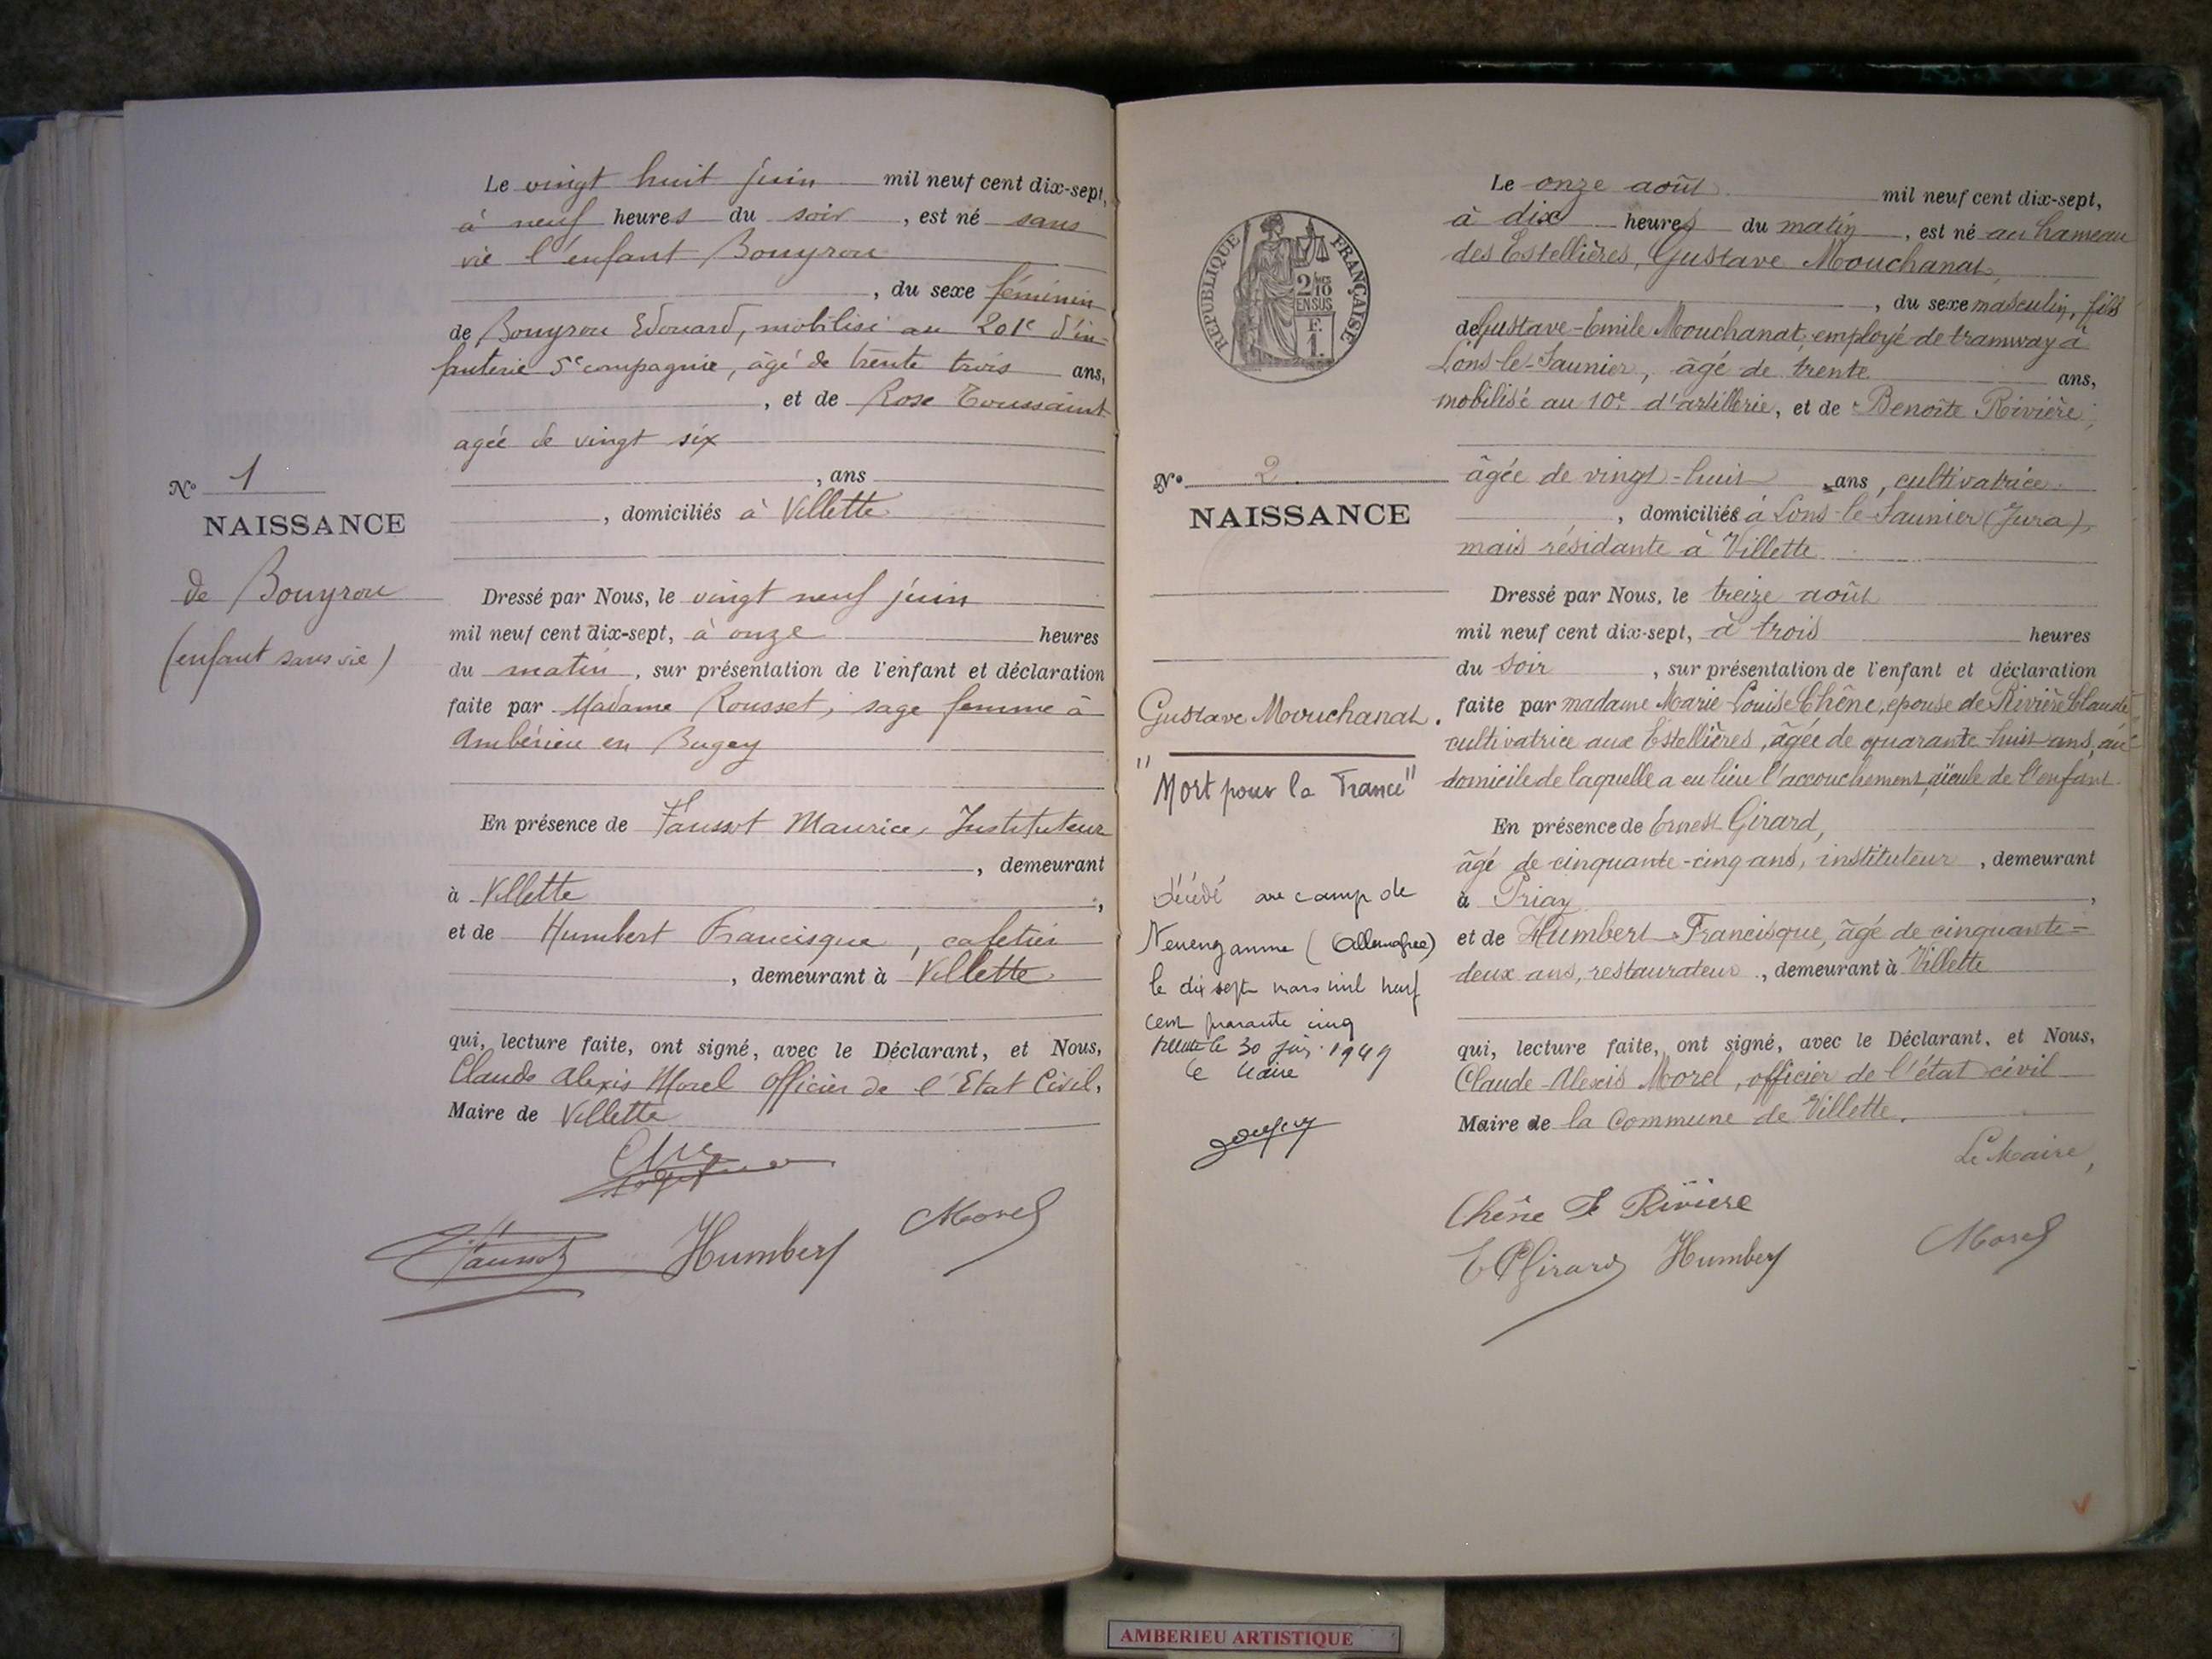 Le vingt huit juin mil neuf cent dix-sept,
à neuf heures du soir, est né sans
vie l'enfant Bouyrou
, du sexe féminin
de Bouyrou Edouard, mobilisé au 201e d'in-
fanterie 5e compagnie, âgé de trente trois ans,
, et de Rose Toussaint
agée de vingt six
, ans
, domiciliés à Villette
No 1
NAISSANCE
de Bouyrou
(enfant sans vie)
Dressé par Nous, le vingt neuf juin
mil neuf cent dix-sept, à onze heures
du matin, sur présentation de l'enfant et déclaration
faite par Madame Rousset, sage femme à
Ambérieu en Bugey
En présence de Faussot Maurice, Instituteur
, demeurant
à Villette,
et de Humbert Francisque, cafetier
, demeurant à Villette
qui, lecture faite, ont signé, avec le Déclarant, et Nous,
Claude Alexis Morel officier de l'Etat Civil,
Maire de Villette
Faussot Humbert Morel
REPUBLIQUE FRANÇAISE
2/10 EN SUS
F.
1.
Le onze août mil neuf cent dix-sept,
à dix heures du matin, est né au hameau
des Estellières, Gustave Mouchanat,
, du sexe masculin, fils
de Gustave-Emile Mouchanat, employé de tramway à
Lons-le-Saunier, âgé de trente ans,
mobilisé au 10e d'artillerie, et de Benoîte Rivière,
âgée de vingt-huit ans, cultivatrice
, domiciliés à Lons-le-Saunier (Jura),
mais résidante à Villette
No 2.
NAISSANCE
Gustave Mouchanat.
"Mort pour la France"
Décédé au camp de
Neuengamme (Allemagne)
le dix sept mars mil neuf
cent quarante cinq
Villette le 30 juin 1949
Le Maire
Dressé par Nous, le treize août
mil neuf cent dix-sept, à trois heures
du soir, sur présentation de l'enfant et déclaration
faite par madame Marie-Louise Chêne, épouse de Rivière Claude
cultivatrice aux Estellières, âgée de quarante-huit ans, au
domicile de laquelle a eu lieu l'accouchement, aïeule de l'enfant
En présence de Ernest Girard,
âgé de cinquante-cinq ans, instituteur, demeurant
à Priay,
et de Humbert Francisque, âgé de cinquante-
deux ans, restaurateur, demeurant à Villette
qui, lecture faite, ont signé, avec le Déclarant, et Nous,
Claude-Alexis Morel, officier de l'état civil
Maire de la Commune de Villette.
Le Maire,
Chêne Rivière
E Girard Humbert Morel
AMBERIEU ARTISTIQUE